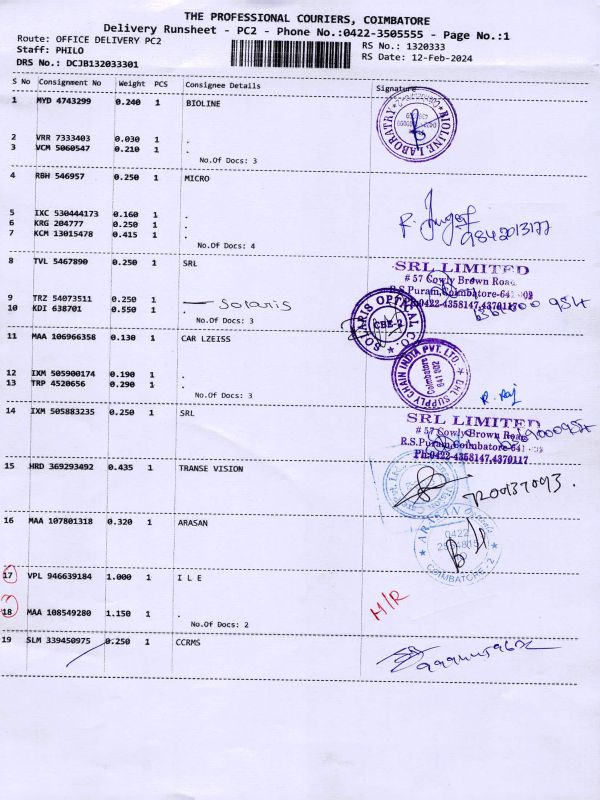 THE PROFESSIONAL COURIERS, COIMBATORE
Delivery Runsheet - PC2 - Phone No.:0422-3505555 - Page No.:1
Route: OFFICE DELIVERY PC2
RS No.: 1320333
Staff: PHILO
RS Date: 12-Feb-2024
DRS No.: DCJB132033301
S No Consignment No Weight PCS Consignee Details Signature
1 MYD 4743299 0.240 1 BIOLINE
BIOLINE LABORATRY
2 VRR 7333403 0.030 1 .
3 VCM 5060547 0.210 1 .
No.Of Docs: 3
4 RBH 546957 0.250 1 MICRO
5 IXC 530444173 0.160 1 .
6 KRG 204777 0.250 1 .
7 KCM 13015478 0.415 1 .
9842013177
No.Of Docs: 4
8 TVL 5467890 0.250 1 SRL
SRL LIMITED
# 57 Cowly Brown Road
R.S.Puram, Coimbatore-641 002
Ph:0422-4358147,4370117
9 TRZ 54073511 0.250 1 - Solaris
10 KDI 638701 0.550 1 .
SOLARIS OPTICAL CO.
CBE-2
No.Of Docs: 3
11 MAA 106966358 0.130 1 CAR LZEISS
SUPPLY CHAIN INDIA PVT. LTD.
Coimbatore
641 002
12 IXM 505900174 0.190 1 .
13 TRP 4520656 0.290 1 .
R. Raj
No.Of Docs: 3
14 IXM 505883235 0.250 1 SRL
SRL LIMITED
# 57 Cowly Brown Road
R.S.Puram, Coimbatore-641
Ph:0422-4358147,4370117
15 HRD 369293492 0.435 1 TRANSE VISION
16 MAA 107801318 0.320 1 ARASAN
ARASAN
0422
COIMBATORE - 2
17 VPL 946639184 1.000 1 I L E
3
M/R
18 MAA 108549280 1.150 1 .
No.Of Docs: 2
19 SLM 339450975 0.250 1 CCRMS